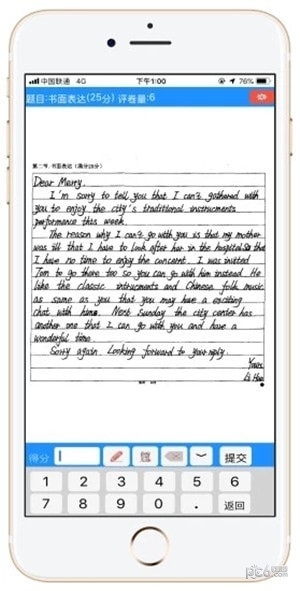 中国联通 4G 下午1:00 76%
题目:书面表达(25分) 评卷量:6
第二节. 书面表达 (满分25分)
Dear Merry,
I'm sorry to tell you that I can't gathered with
you to enjoy the city's traditional instruments
performance this week.
The reason why I can't go with you is that my mother
was ill that I have to look after her in the hospital. So that
I have no time to enjoy the concert. I was invited
Tom to go there too so you can go with him instead. He
like the classic intruments and Chinese folk music
as same as you that you may have a exciting
chat with him. Next Sunday the city center has
another one that I can go with you and have a
wonderful time.
Sorry again. Looking forward to your reply.
Yours
Li Hua
得分 提交
1 2 3 4 5 6
7 8 9 0 . 返回
pc6.com